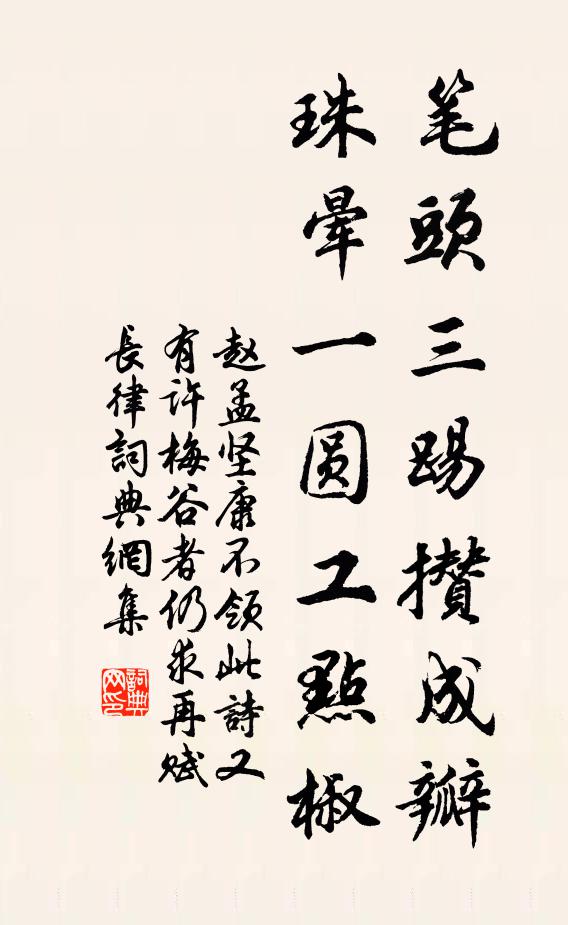 笔頭三踢攢成瓣
珠暈一圆工點椒
赵孟坚康不领此詩又
有许梅谷者仍求再赋
長律詞典網集
詞典网印